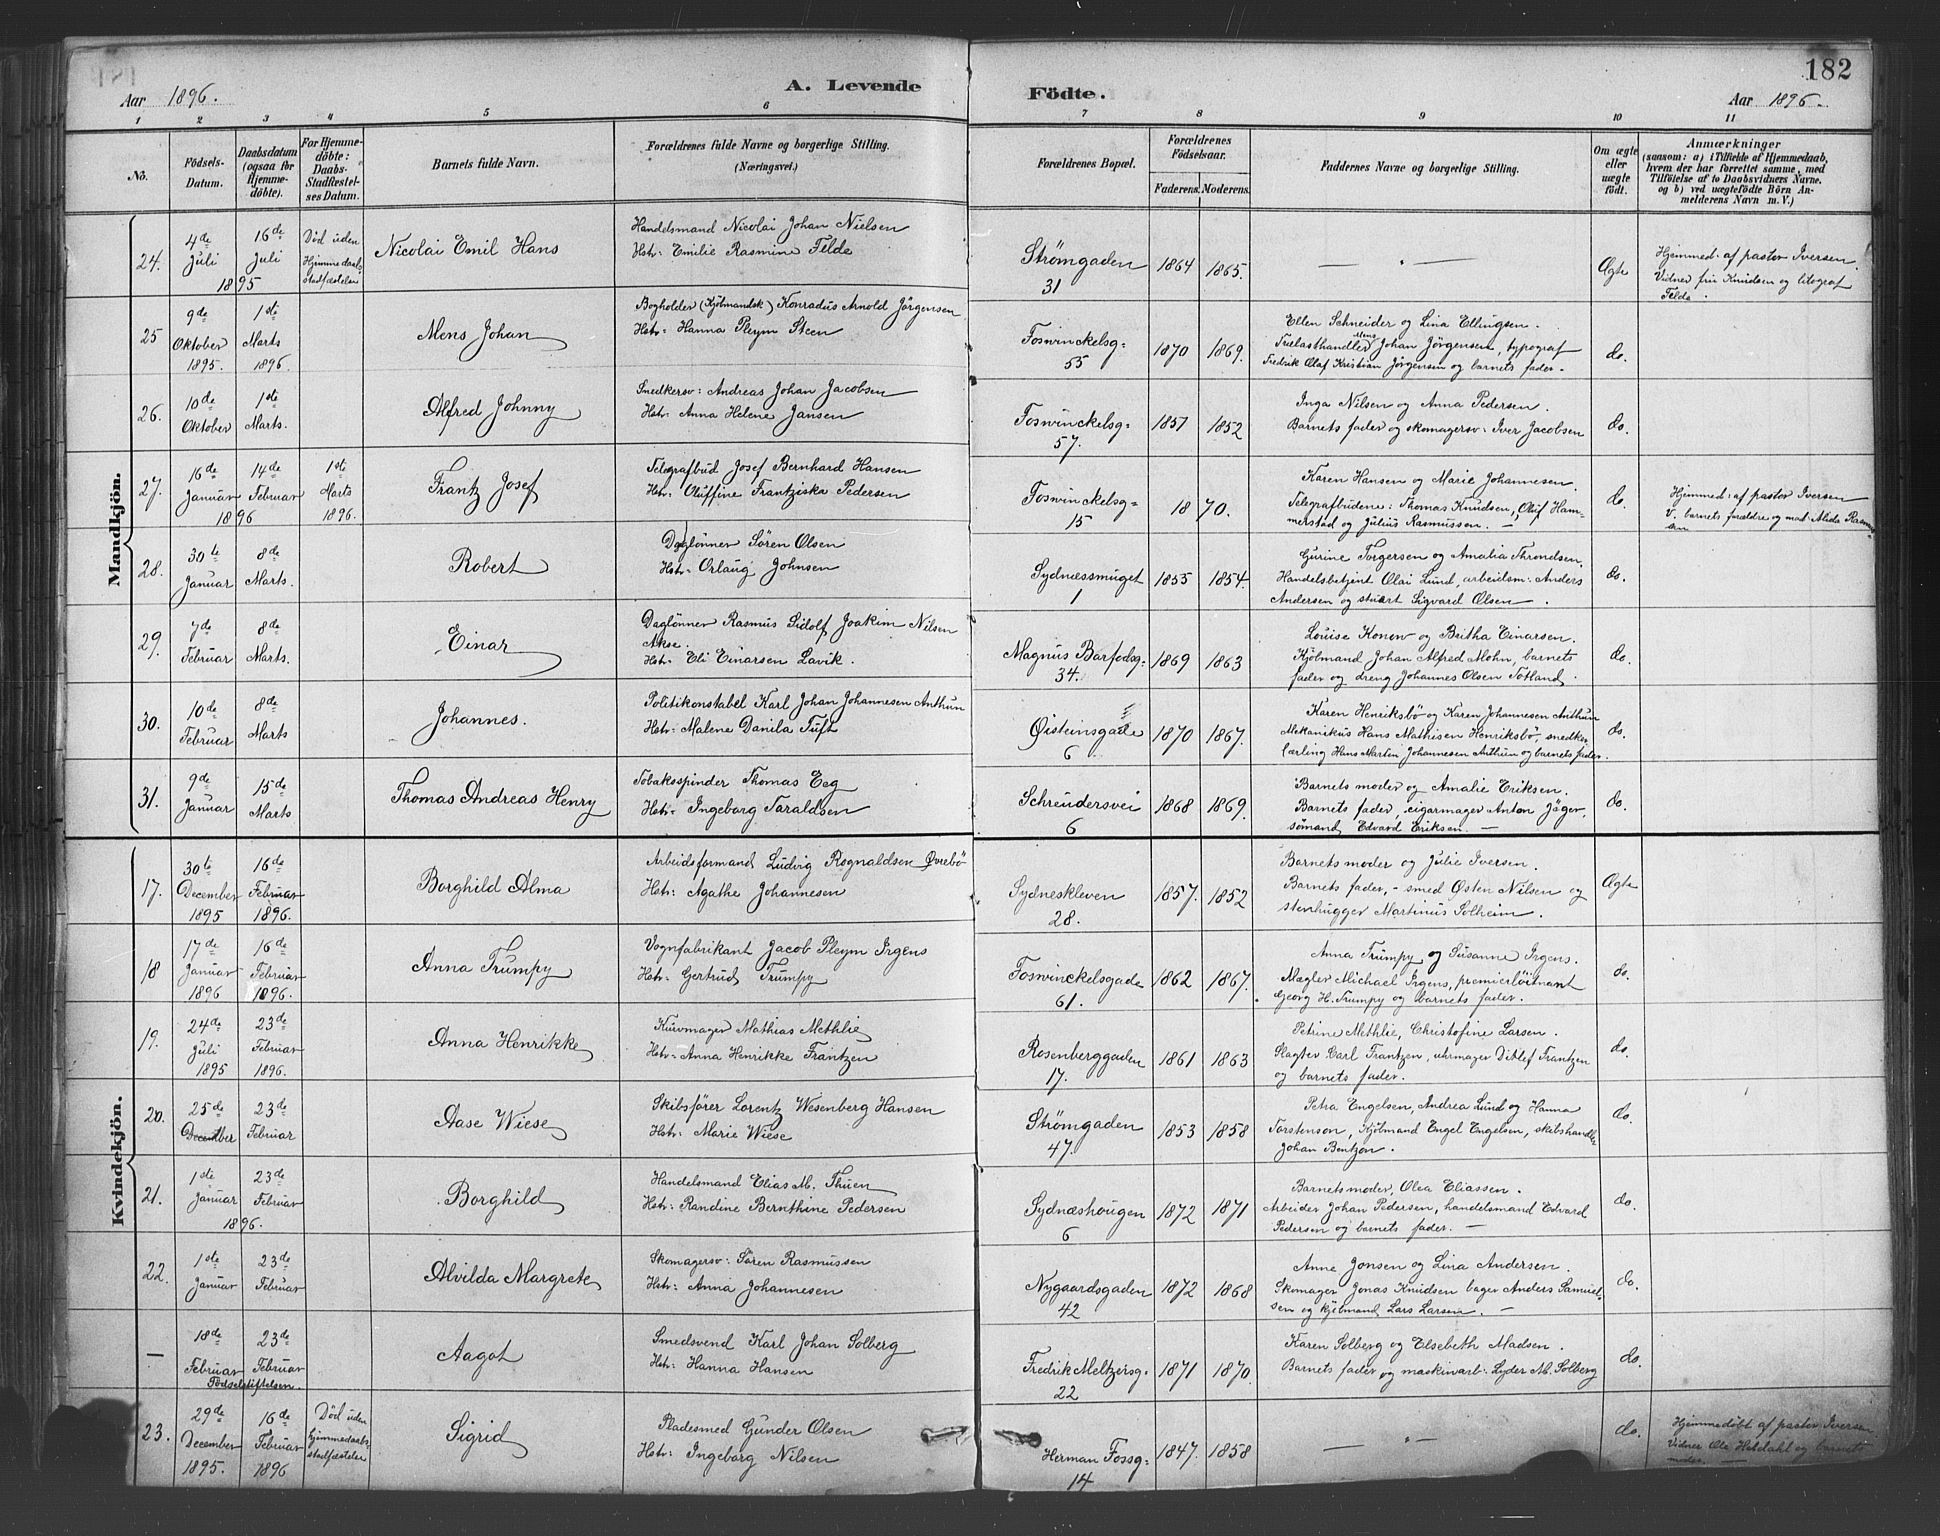 182
Aar 1896.
A. Levende
Födte.
Aar 1896.
1 2 3 4 5 6 7 8 9 10 11
No.
Födsels-Datum.
Daabsdatum (ogsaa for Hjemmedöbte).
For Hjemmedöbte: Daabs-Stadfæstelses Datum.
Barnets fulde Navn.
Forældrenes fulde Navne og borgerlige Stilling.
(Næringsvei.)
Forældrenes Bopæl.
Forældrenes Födselsaar.
Faderens. Moderens.
Faddernes Navne og borgerlige Stilling.
Om ægte eller uægte födt.
Anmærkninger
(saasom: a) i Tilfælde af Hjemmedaab, hvem der har forrettet samme, med Tilföielse af to Daabsvidners Navne, og b) ved uægtefödte Börn Anmelderens Navn m. V.)
Mandkjön.
24. 4de Juli 16de Juli 1895 Död uden Hjemmedaabs-stadfæstelse
Nicolai Emil Hans
Handelsmand Nicolai Johan Nielsen
Hstr: Emilie Rasmine Felde
Strømgaden 31 1864 1865. — " — Ægte
Hjemmed. af pastor Iversen.
Vidner fru Knudsen og litograf
Felde.
25 9de Oktober 1895. 1ste Marts 1896.
Mens Johan
Bogholder (Kjöbmandsk) Konradus Arnold Jörgensen
Hstr: Hanna Pleym Steen
Fosvinckelsg= 55 1870 1869.
Ellen Schneider og Lina Ellingsen.
Trælasthandler Mens Johan Jörgensen, typograf
Fredrik Olaf Kristian Jörgensen og barnets fader. do.
26. 10de Oktober 1ste Marts.
Alfred Johnny
Snedkersv: Andreas Johan Jacobsen
Hstr: Anna Helene Jansen
Fosvinckelsg= 57. 1857 1852
Inga Nilsen og Anna Pedersen.
Barnets fader og skomagersv: Iver Jacobsen do.
27. 16de Januar 14de Februar 1896 1ste Marts 1896.
Frantz Josef
Telegrafbud Josef Bernhard Hansen
Hstr: Oluffine Frantziska Pedersen
Fosvinckelsg= 15 1870.
Karen Hansen og Marie Johannesen.
Telegrafbudene: Thomas Knudsen, Oluf Hammerstad og Julius Rasmussen. — do.
Hjemmed: af pastor Iversen
V. barnets forældre og mad. Alida Rasmussen
28. 30te Januar 8de Marts.
Robert
Daglönner Sören Olsen
Hstr: Orlaug Johnsen
Sydnæssmuget 1 1855 1854.
Gurine Torgersen og Amalia Throndsen,
Handelsbetjent Olai Lund, arbeidsm: Anders
Andersen og stuart Sigvard Olsen. do.
29. 7de Februar 8de Marts.
Einar
Daglönner Rasmus Sidolf Joakim Nilsen
Akse.
Hstr: Eli Einarsen Lavik.
Magnus Barfodsg: 34. 1869 1863
Louise Konow og Britha Einarsen.
Kjöbmand Johan Alfred Mohn, barnets
fader og dreng Johannes Olsen Totland. do.
30. 10de Februar 8de Marts
Johannes.
Politikonstabel Karl Johan Johannesen Anthun
Hstr: Malene Danila Tuft
Øisteinsgade 6 1870 1867.
Karen Henriksbö og Karen Johannesen Anthun
Mekanikus Hans Mathisen Henriksbö, snedker
lærling Hans Martin Johannesen Anthun og barnets fader. do.
31. 9de Januar 15de Marts
Thomas Andreas Henry
Tobaksspinder Thomas Eeg
Hstr: Ingeborg Taraldsen
Schreudersvei 6 1868 1869.
Barnets moder og Amalie Eriksen.
Barnets fader, cigarmager Anton Jäger,
sömand Edvard Eriksen. — do.
Kvindekjön.
17. 30te December 1895 16de Februar 1896.
Borghild Alma
Arbeidsformand Ludvig Rognaldsen Øvrebö
Hstr: Agathe Johannesen
Sydneskleven 28. 1857. 1852
Barnets moder og Julie Iversen.
Barnets fader, - smed Østen Nilsen og
stenhugger Martinus Solheim. Ægte
18 17de Januar 1896 16de Februar 1896.
Anna Trumpy
Vognfabrikant Jacob Pleym Irgens
Hstr: Gertrud Trumpy
Fosvinckelsgade 61. 1862 1867.
Anna Trumpy og Susanne Irgens.
Mægler Michael Irgens, premierlöitnant
Georg H. Trumpy og barnets fader. do.
19. 24de Juli 1895 23de Februar 1896.
Anna Henrikke
Kurvmager Mathias Methlie
Hstr: Anna Henrikke Frantzen
Rosenberggaden 17. 1861 1863
Petrine Methlie, Christofine Larsen.
Slagter Carl Frantzen, uhrmager Ditlef Frantzen
og barnets fader. do.
20. 25de December 23de Februar
Aase Wiese
Skibsförer Lorentz Wesenberg Hansen
Hstr: Marie Wiese
Strømgaden 47. 1853 1858
Petra Engelsen, Andrea Lund og Hanna
Torstenson, Kjöbmand Engel Engelsen, skibshandler
Johan Bentzon. do.
21. 1ste Januar 23de Februar 1896.
Borghild
Handelsmand Elias M. Thuen
Hstr: Randine Bernthine Pedersen
Sydnæshougen 6 1872 1871
Barnets moder, Olea Eliassen.
Arbeider Johan Pedersen, handelsmand Edvard
Pedersen og barnets fader. — do.
22. 1ste Januar 23de Februar
Alvilda Margrete
Skomagersv: Sören Rasmussen
Hstr: Anna Johannesen
Nygaardsgaden 42 1872 1868
Anne Jonsen og Lina Andersen.
Skomager Jonas Knudsen bager Anders Samuelsen og kjöbmand Lars Larsen. — do.
— 18de Februar 23de Februar
Födselstiftelsen.
Aagot
Smedsvend Karl Johan Solberg
Hstr: Hanna Hansen
Fredrik Meltzersg= 22 1871 1870.
Karen Solberg og Elsebeth Madsen.
Barnets fader og maskinarb. Lyder M. Solberg do.
23. 29de December 1895. 16de Februar 1896 Död uden hjemmedaabs-stadfæstelse
Sigrid
Pladesmed Gunder Olsen
Hstr: Ingeborg Nilsen
Herman Fossg= 14 1847. 1858 — " — do.
Hjemmedöbt af pastor Iversen.
Vidner Ole Heldahl og barnets
moder. —